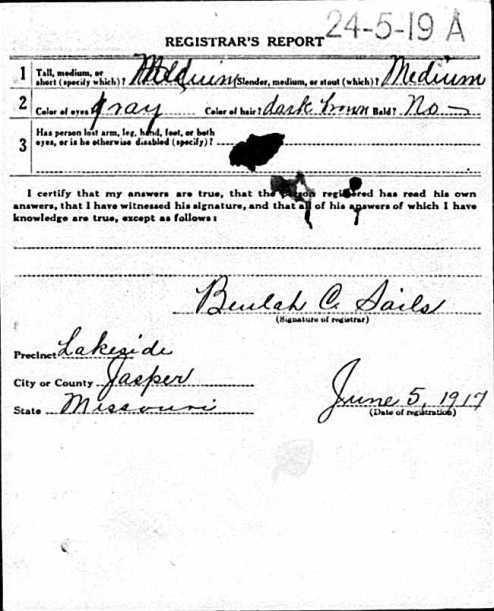 24-5-19 A
REGISTRAR'S REPORT
1 Tall, medium, or short (specify which)? Medium Slender, medium, or stout (which)? Medium
2 Color of eyes gray Color of hair? dark brown Bald? No
3 Has person lost arm, leg, hand, foot, or both eyes, or is he otherwise disabled (specify)?
I certify that my answers are true, that the person registered has read his own
answers, that I have witnessed his signature, and that all of his answers of which I have
knowledge are true, except as follows:
Beulah C. Sails
(Signature of registrar)
Precinct Lakeside
City or County Jasper
State Missouri
June 5, 1917
(Date of registration)